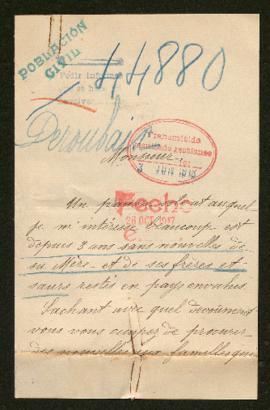 POBLACIÓN
CIVIL
44880
Pedir informe
Deroubaix
Transmitido
3 JUN 1917
Monsieur,
26 OCT. 1917
Un pauvre soldat auquel
je m'intéresse beaucoup est
depuis 3 ans sans nouvelles de
sa Mère et de ses frères et
sœurs restés en pays envahis.
Sachant avec quel dévouement
vous vous occupez de procurer
des nouvelles aux familles que